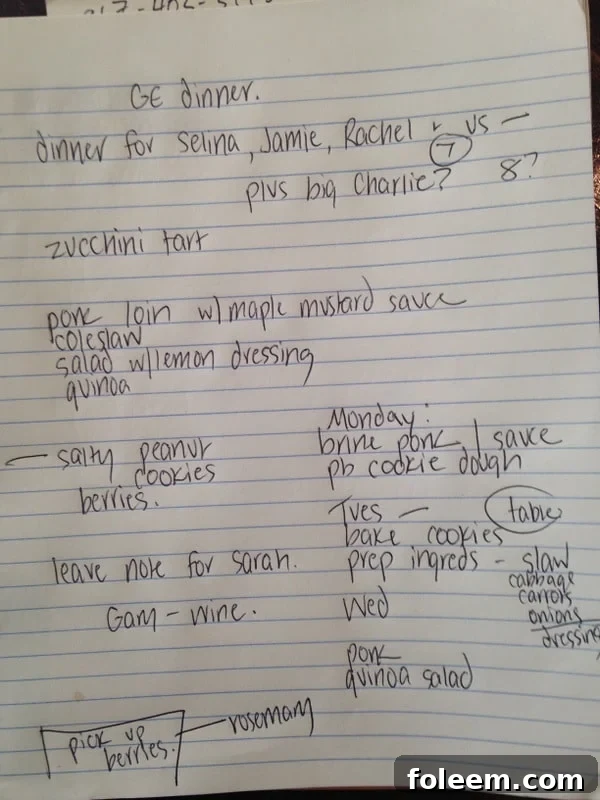 GE dinner.
dinner for Selina, Jamie, Rachel + us —
7
plus big Charlie? 8?
zucchini tart
pork loin w/ maple mustard sauce
coleslaw
salad w/ lemon dressing
quinoa
— salty peanut
cookies
berries.
leave note for Sarah.
Gam - wine.
Monday:
brine pork / sauce
pb cookie dough
Tues — table
bake cookies
prep ingreds - slaw
cabbage
carrots
onions
dressing
Wed
pork
quinoa salad
pick up
berries.
rosemary
foleem.com